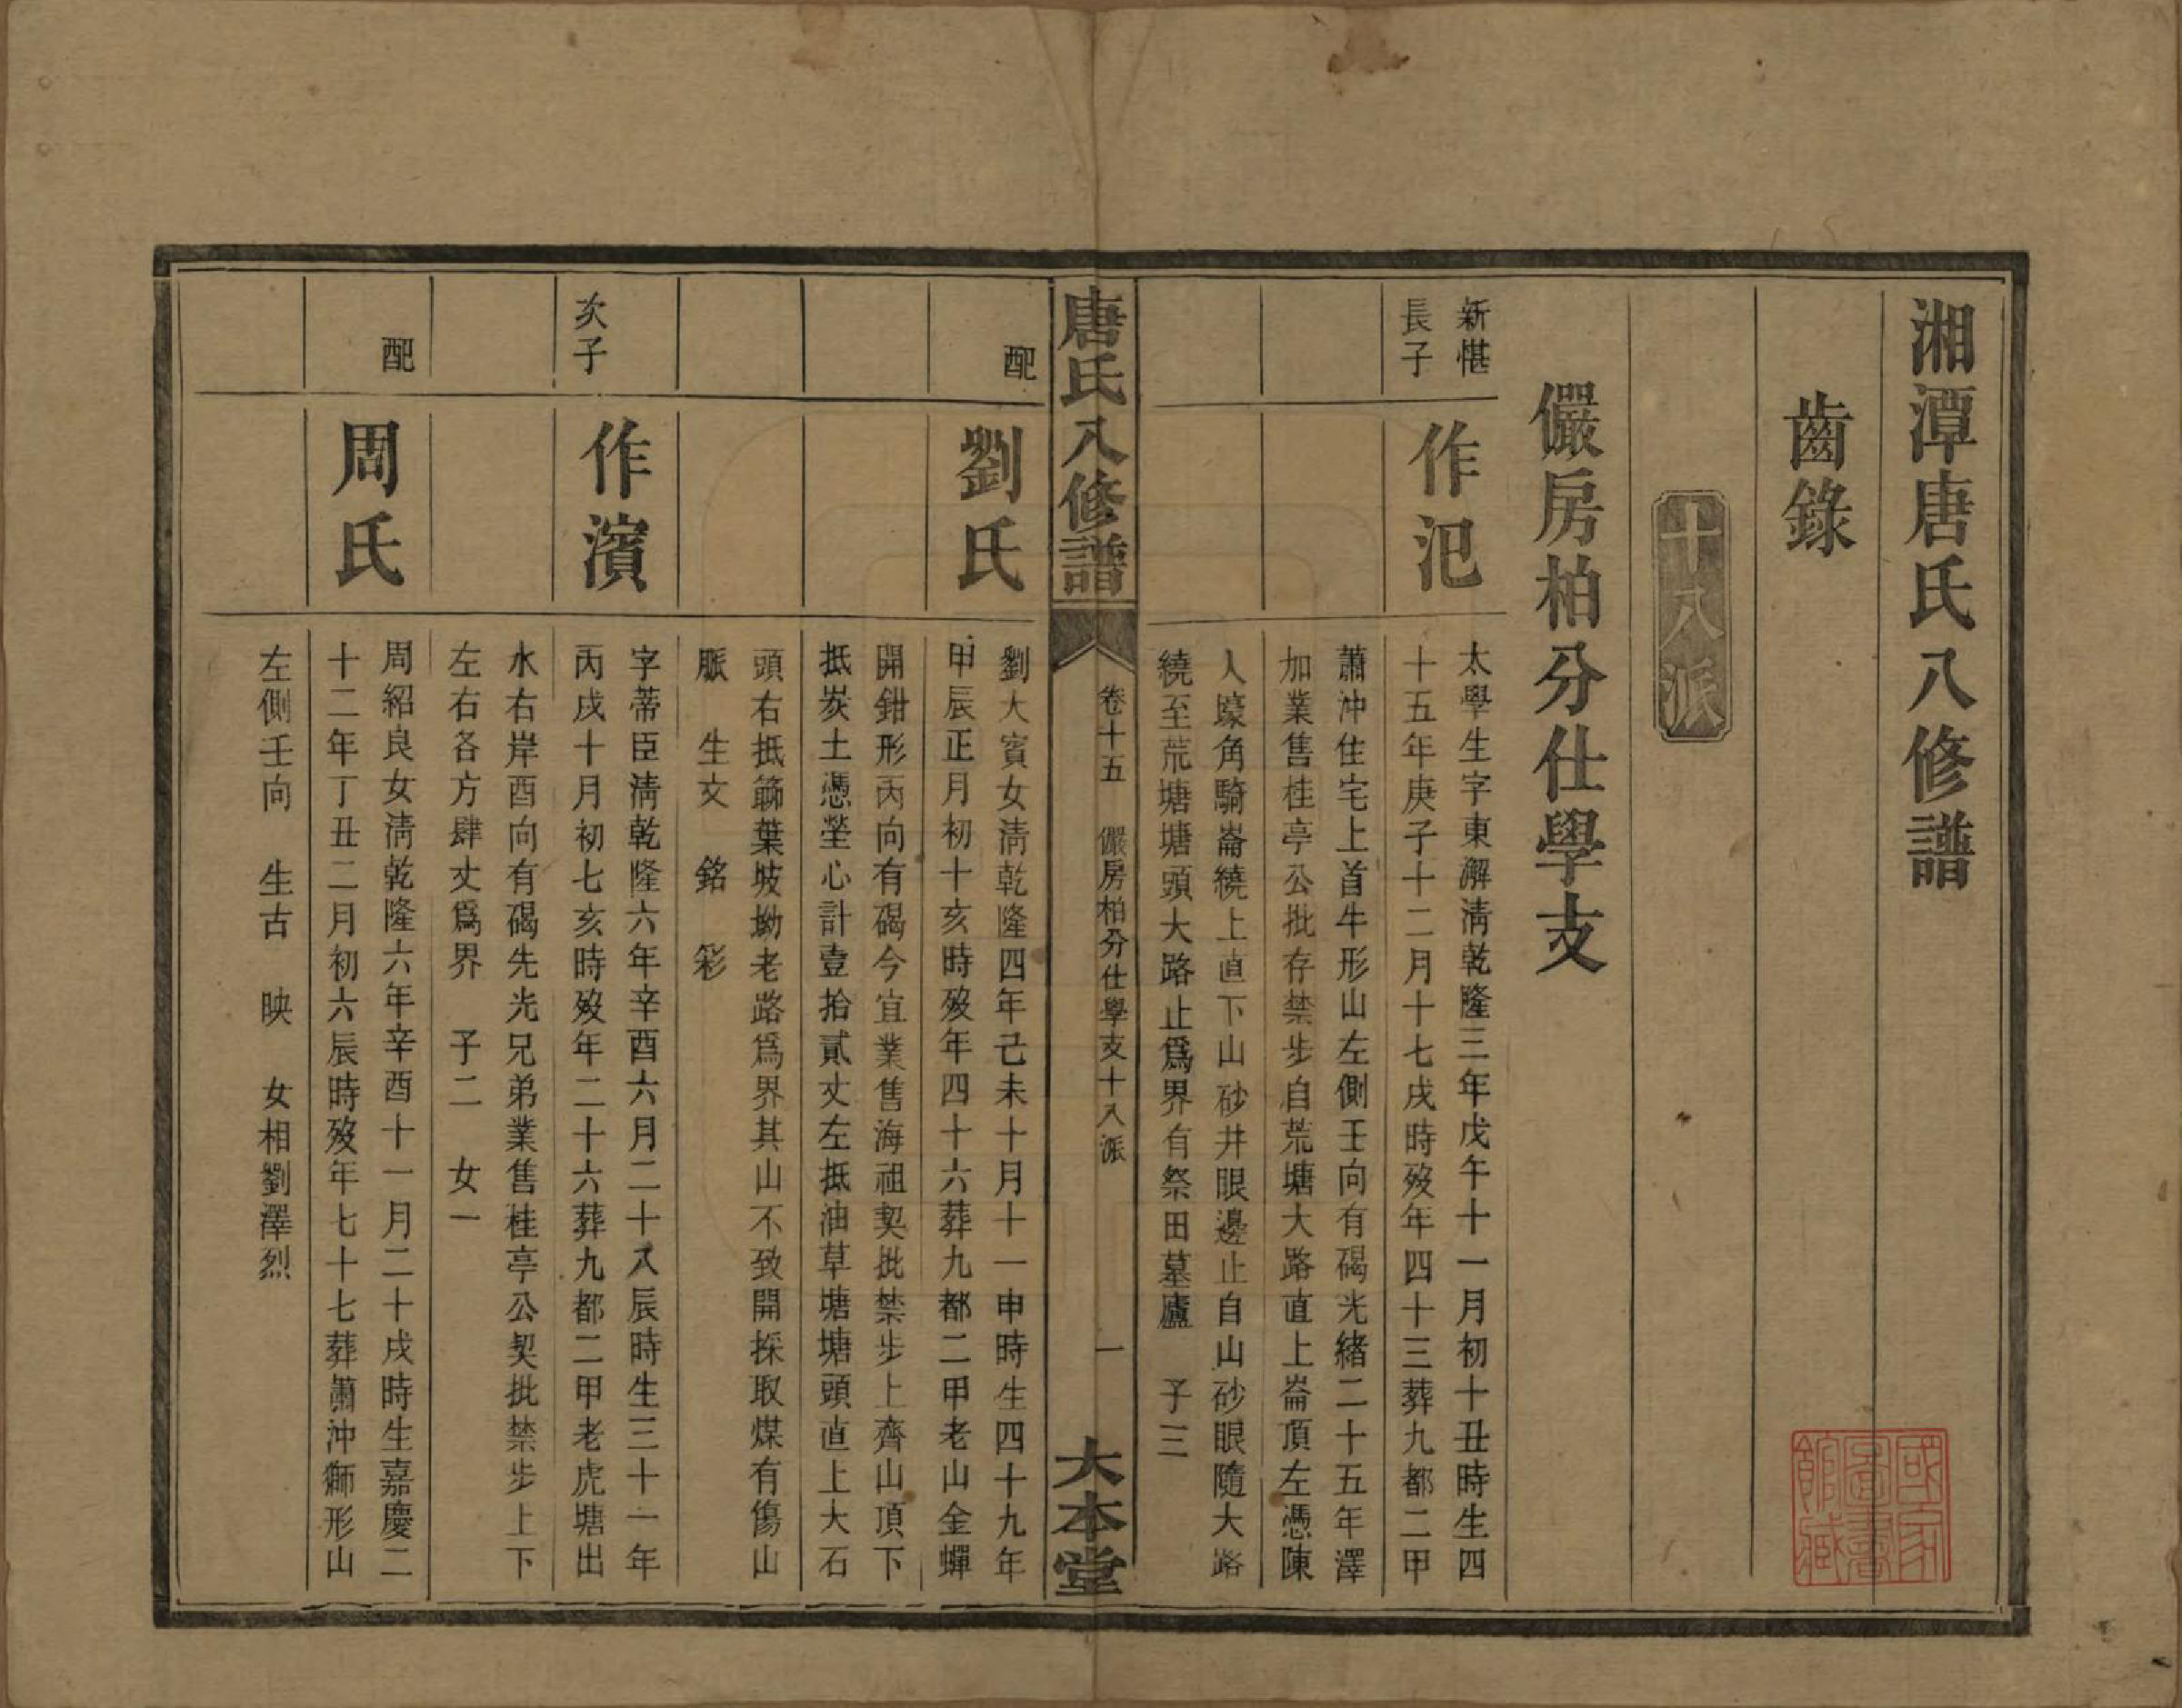 湘潭唐氏八修譜
齒錄
十八派
儼房柏分仕學支
新愖
長子
作氾
太學生字東澥清乾隆三年戊午十一月初十丑時生四
十五年庚子十二月十七戌時歿年四十三葬九都二甲
蕭沖住宅上首牛形山左側壬向有碣光緒二十五年澤
加業售桂亭公批存禁步自荒塘大路直上崙頂左憑陳
人壕角騎崙繞上直下山砂井眼邊止自山砂眼隨大路
繞至荒塘塘頭大路止爲界有祭田墓廬 子三
唐氏八修譜
卷十五 儼房柏分仕學支十八派
一
大本堂
配
劉氏
劉大賓女清乾隆四年己未十月十一申時生四十九年
甲辰正月初十亥時歿年四十六葬九都二甲老山金蟬
開鉗形丙向有碣今宜業售海祖契批禁步上齊山頂下
抵炭土憑塋心計壹拾貳丈左抵油草塘塘頭直上大石
頭右抵篛葉坡坳老路爲界其山不致開採取煤有傷山
脈 生文 銘 彩
次子
作濱
字蒂臣清乾隆六年辛酉六月二十八辰時生三十一年
丙戌十月初七亥時歿年二十六葬九都二甲老虎塘出
水右岸酉向有碣先光兄弟業售桂亭公契批禁步上下
左右各方肆丈爲界 子二 女一
配
周氏
周紹良女清乾隆六年辛酉十一月二十戌時生嘉慶二
十二年丁丑二月初六辰時歿年七十七葬蕭沖獅形山
左側壬向 生古 映 女相劉澤烈
國家圖書館藏